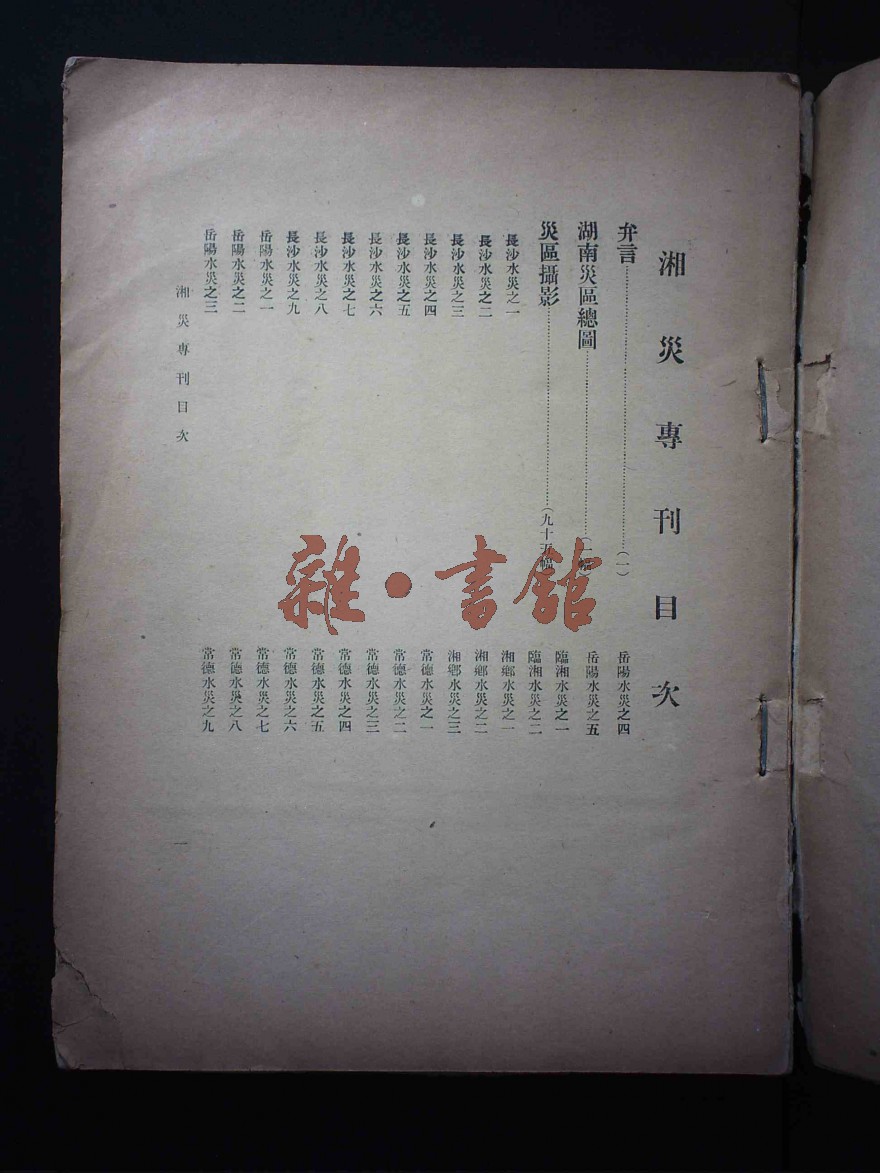 湘災專刊目次
弁言……(一)
湖南災區總圖……(一幅)
災區攝影……(九十五幅)
長沙水災之一
長沙水災之二
長沙水災之三
長沙水災之四
長沙水災之五
長沙水災之六
長沙水災之七
長沙水災之八
長沙水災之九
岳陽水災之一
岳陽水災之二
岳陽水災之三
岳陽水災之四
岳陽水災之五
臨湘水災之一
臨湘水災之二
湘鄉水災之一
湘鄉水災之二
湘鄉水災之三
常德水災之一
常德水災之二
常德水災之三
常德水災之四
常德水災之五
常德水災之六
常德水災之七
常德水災之八
常德水災之九
湘災專刊目次
一
雜·書館